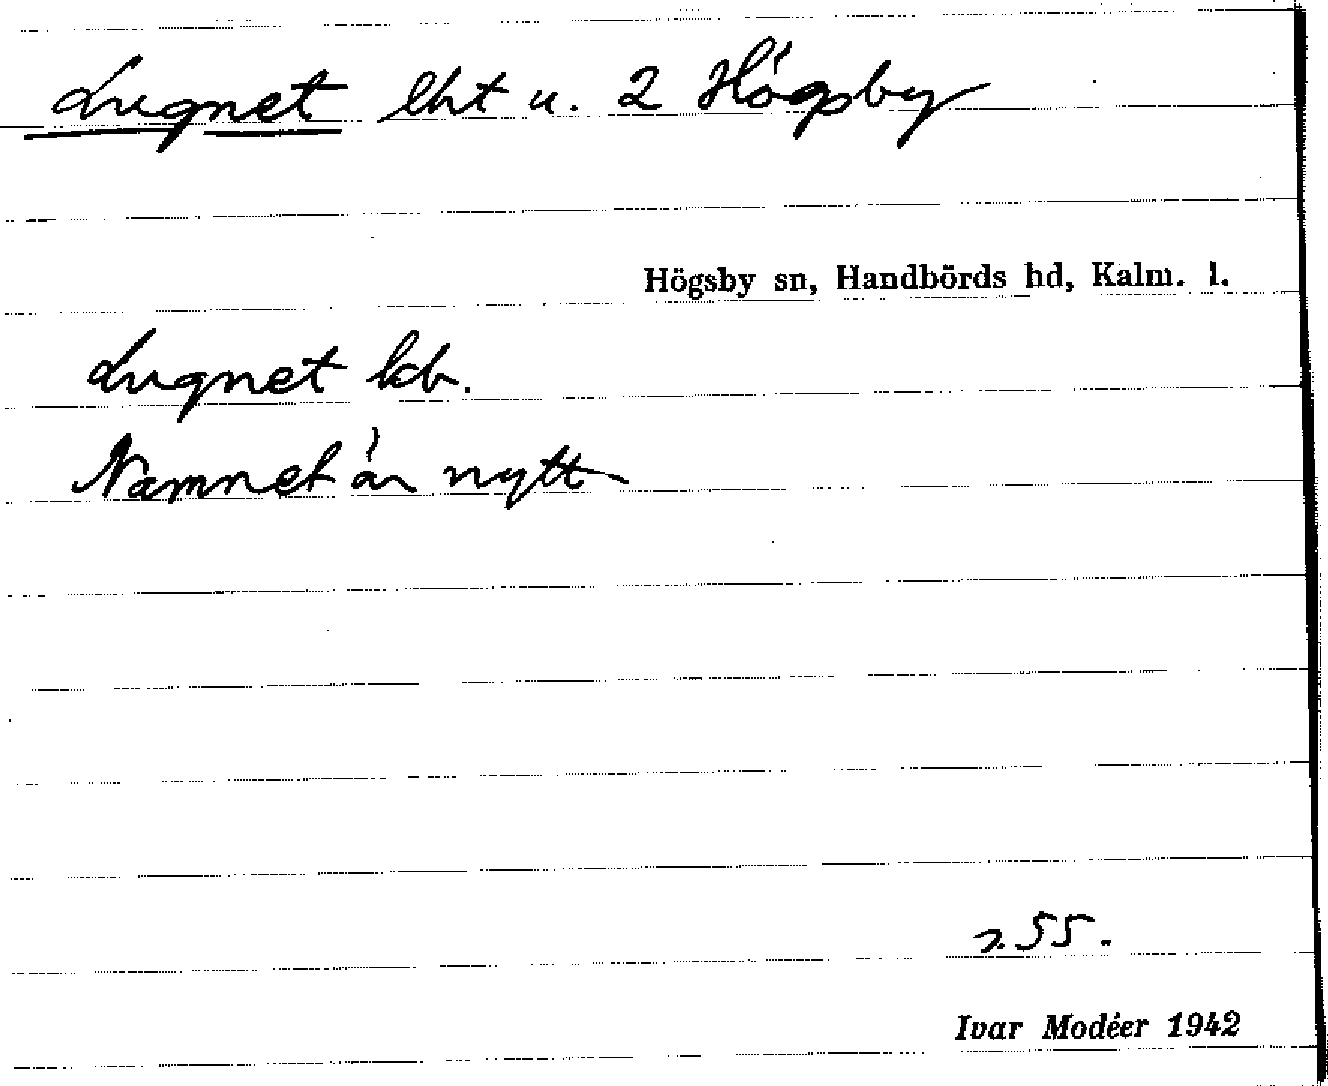 Lugnet lht u. 2 Högsby
Högsby sn, Handbörds hd, Kalm. l.
Lugnet kb.
Namnet är nytt
255.
Ivar Modéer 1942